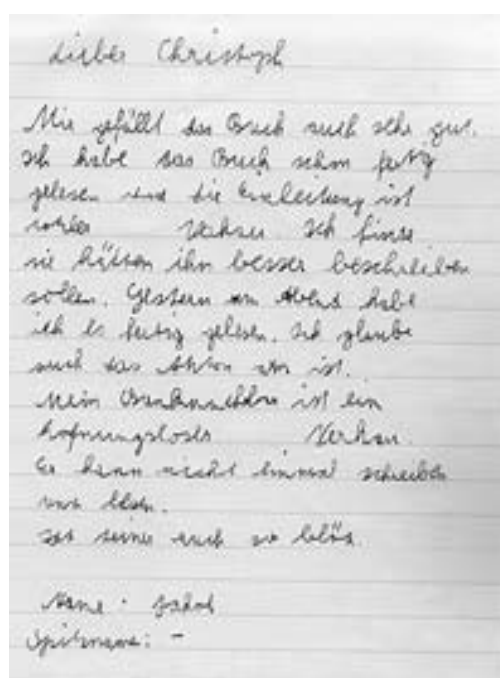 Lieber Christoph
Mir gefällt das Buch auch sehr gut.
Ich habe das Buch schon fertig
gelesen und die Einleitung ist
Ich finde
sie hätten ihn besser beschreiben
sollen. Gestern am Abend habe
ich es fertig gelesen. Ich glaube
auch das ist.
Mein ist ein
hofnungsloser
Er kann nicht einmal schreiben
und lesen.
Ist deiner auch so blöd.
Name: Jakob
Spitzname: -